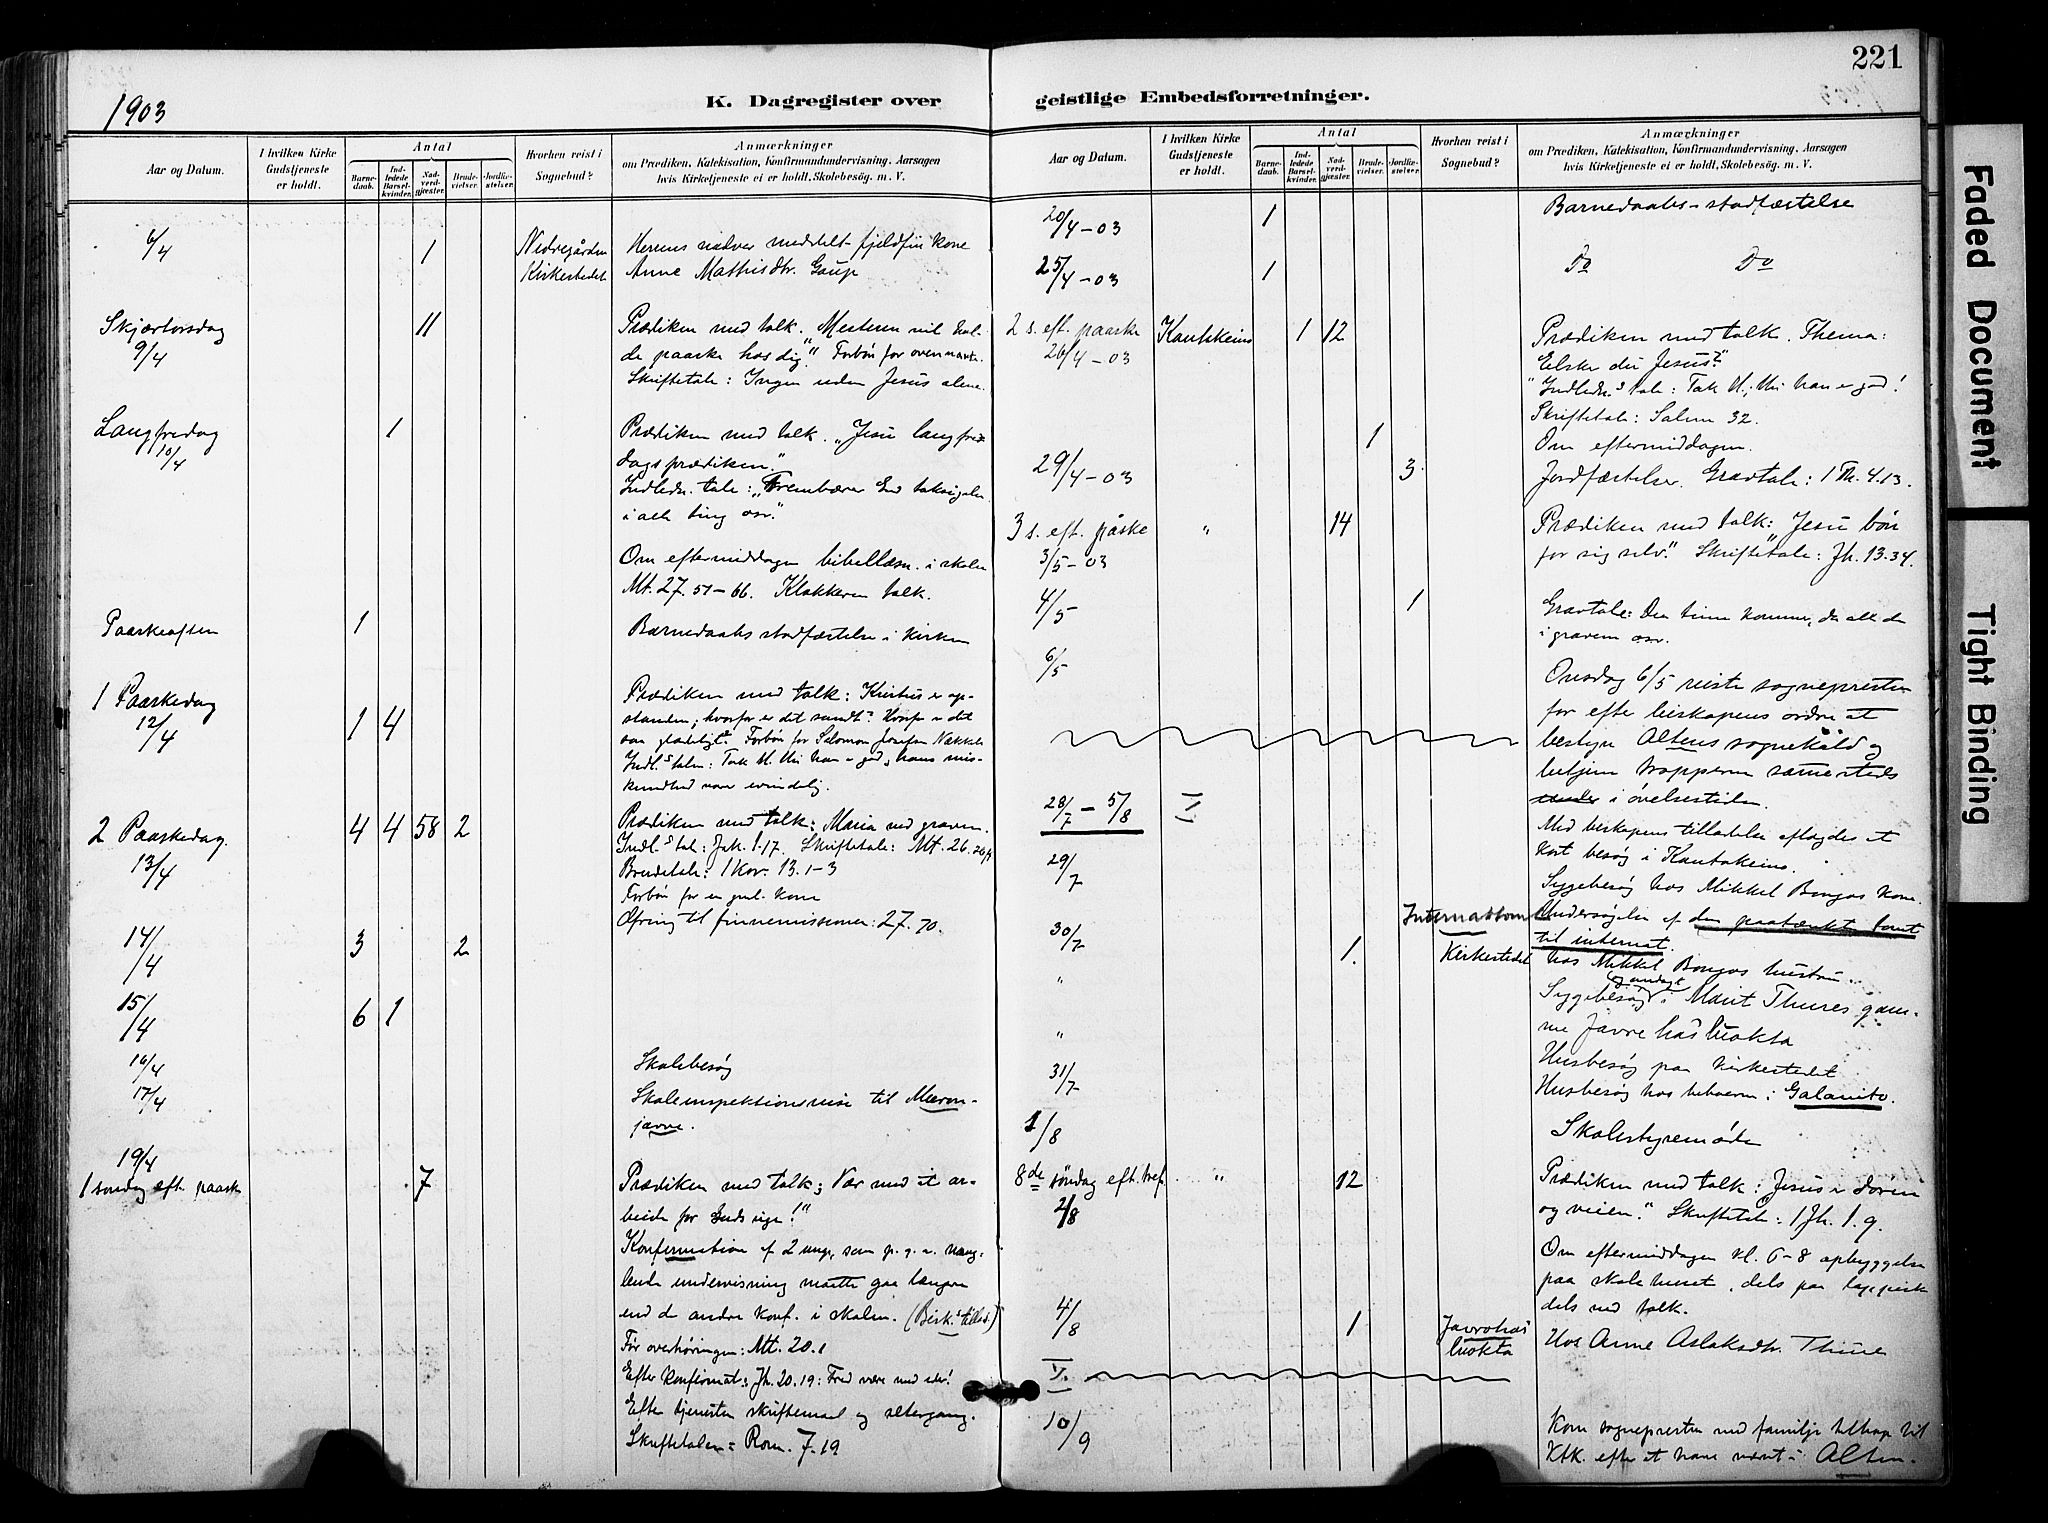 221
1903
K. Dagregister over
geistlige Embedsforretninger.
Aar og Datum.
I hvilken Kirke Gudstjeneste er holdt.
Antal
Barnedaab.
Indledede Barselkvinder.
Nadverdgjæster.
Brudevielser.
Jordfæstelser.
Hvorhen reist i Sognebud?
Anmærkninger
om Prædiken, Katekisation, Konfirmandundervisning, Aarsagen
hvis Kirketjeneste ei er holdt, Skolebesög. m. V.
6/4 1 Nedregården Herrens nadver meddelt fjeldfin kone
Kirkestedet Anne Mathisdtr. Gaup
Skjærtorsdag 11 Prædiken med tolk. "Mesteren vil hol-
9/4 de paaske hos dig." Forbøn for
Skriftetale: Ingen uden Jesus alene.
Langfredag 1 Prædiken med tolk. "Jesu langfre-
10/4 dagsprædiken."
Indledn. tale: "Frembærer Gud taksigelse
i alle ting osv."
Om eftermiddagen bibellæsn. i skolen
Mt. 27. 51-66. Klokkeren tolk.
Paaskeaften 1 Barnedaabs stadfæstelse i kirken
1 Paaskedag Prædiken med tolk: Kristus er op-
12/4 1 4 standen; hvorfor er det sandt? Hvorfor er det
saa glædeligt? Forbøn for Salomon Josefsen Nækkele
Indl.s tale: Tak H. thi han er god, hans mis-
kundhed varer evindelig.
2 Paaskedag. 4 4 58 2 Prædiken med tolk: Maria ved graven.
13/4 Indl.s tal: Jak. 1.17. Skriftetale: Mt. 26.
Brudetale: 1 Kor. 13. 1-3
Forbøn for en gml. kone
Ofring til finnemissionen: 27.70.
14/4 3 2
15/4 6 1
16/4 Skolebesøg
17/4 Skoleinspektionsreise til Mieron-
javre.
19/4
1 søndag eft. paaske 7 Prædiken med tolk; Vær med at ar-
beide for Guds rige!"
Konfirmation af 2 unge, som p. g. a. mang-
lende undervisning maatte gaa længere
end de andre konf. i skolen. (Bisk.s tillad.)
Før overhøringen: Mt. 20.1
Efter konfirmat.: Jh. 20.19: Fred være med eder!
Efter tjenesten skriftemaal og altergang.
Skriftetalen: Rom. 7.19
Aar og Datum.
I hvilken Kirke Gudstjeneste er holdt.
Antal
Barnedaab.
Indledede Barselkvinder.
Nadverdgjæster.
Brudevielser.
Jordfæstelser.
Hvorhen reist i Sognebud?
Anmærkninger
om Prædiken, Katekisation, Konfirmandundervisning, Aarsagen
hvis Kirketjeneste ei er holdt, Skolebesög. m. V.
20/4 - 03 1 Barnedaabs-stadfæstelse
25/4 - 03 1 Do Do
2 s. eft. paaske Kautokeino 1 12 Prædiken med tolk. Thema:
26/4 - 03 Elsker du Jesus?"
"Indledn.s tale: Tak H., thi han er god!
Skriftetale: Salme 32.
1 Om eftermiddagen.
29/4 - 03 3 Jordfæstelser. Gravtale: 1 Th. 4.13.
3 s. eft. påske " 14 Prædiken med tolk: Jesu bøn
3/5 - 03 for sig selv." Skriftetale: Jh. 13.34.
4/5 1 Gravtale: Den time kommer, da alle de
i gravene osv.
6/5 Onsdag 6/5 reiste sognepresten
for efter biskopens ordre at
bestyre Altens sognekald og
betjene tropperne sammesteds
under i øvelsestiden.
28/7 - 5/8 Med biskopens tilladelse aflagdes et
kort besøg i Kautokeino.
29/7 Sygebesøg hos Mikkel Bongos kone.
Internattomt Undersøgelse af den paatænkte tomt
til internat.
30/7 1. Kirkestedet hos Mikkel Bongos hustru.
" Sygebesøg og andagt i Marit Thures gam-
me Javre has luokta
" Husbesøg paa kirkestedet
31/7 Husbesøg hos beboerne i Galanito.
1/8 Skolestyremøde
8de søndag eft. tref. " 12 Prædiken med tolk: Jesus er døren
2/8 og veien." Skriftetale: 1 Jh. 1.9.
Om eftermiddagen kl. 6-8 opbyggelse
paa skolehuset, dels paa lappisk
dels med tolk.
4/8 1 Javrohas luokta Hos Anne Aslaksdtr. Thure
V.
10/9 Kom sognepresten med familje tilbage til
Ktk. efter at have været i Alten.
Faded Document
Tight Binding